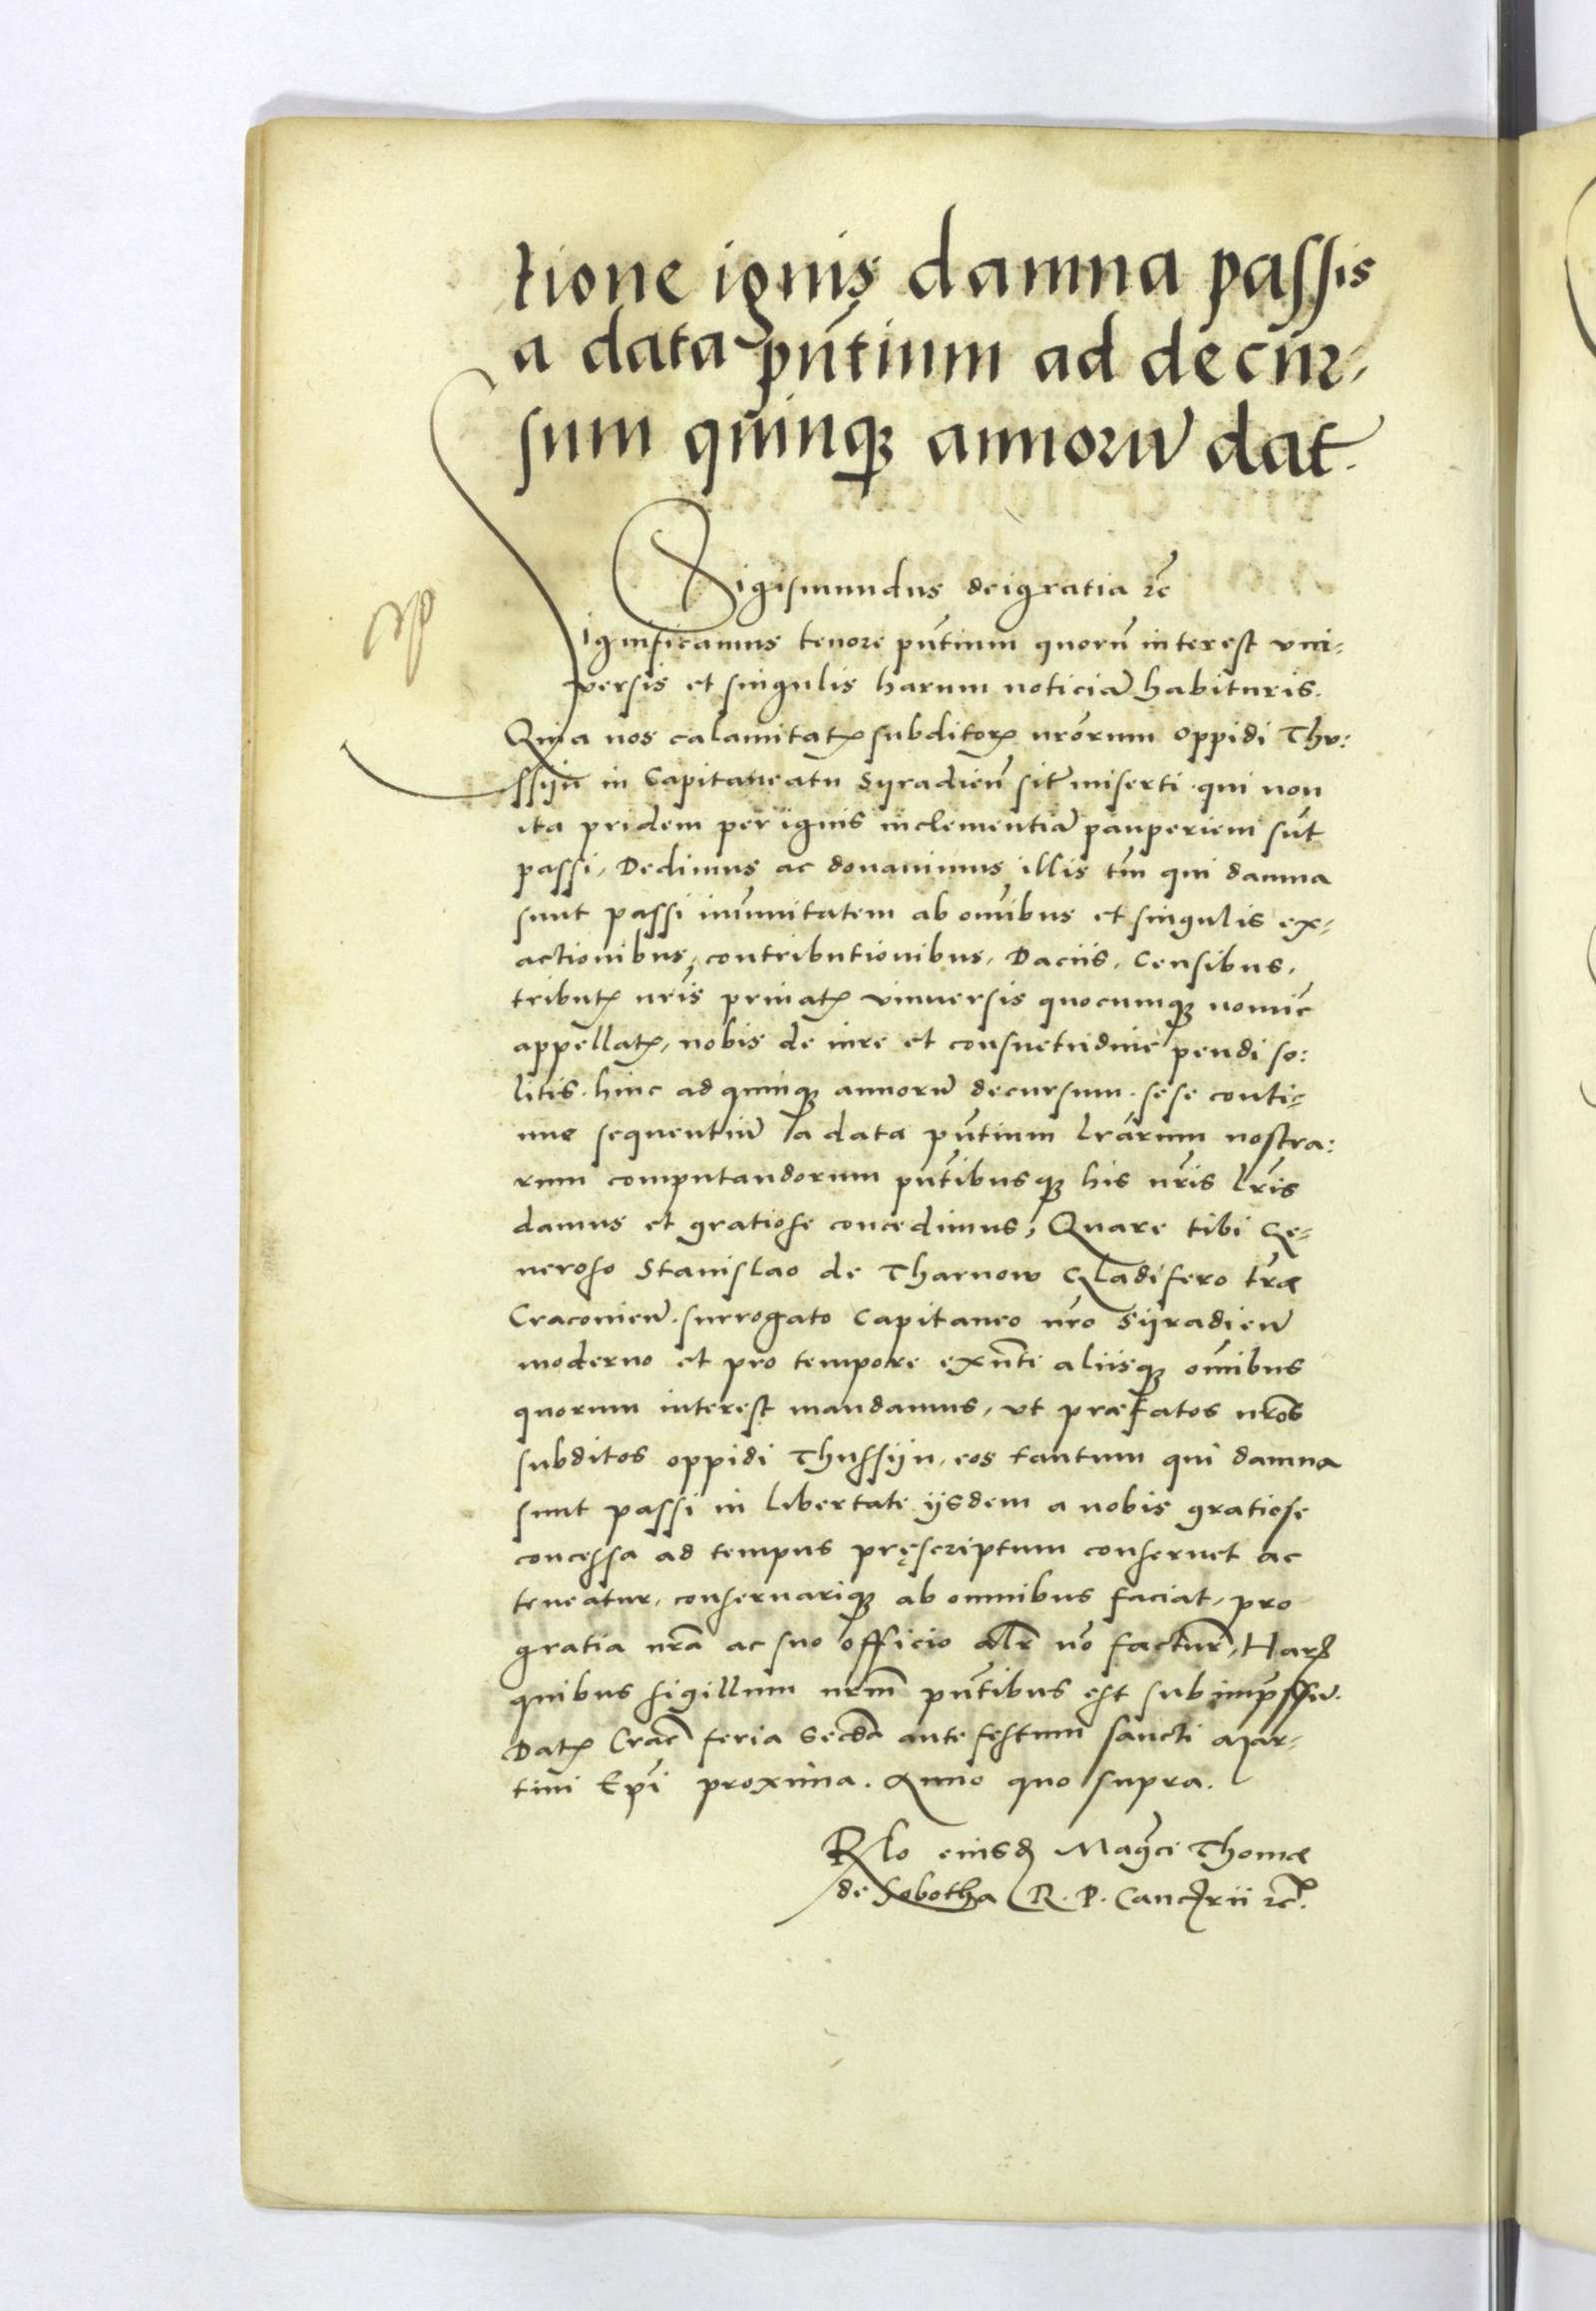 tione ignis damna passis
a data pñtium ad decur-
sum quinqꝫ annorũ dat.
Sigismundus dei gratia ꝛc̃
Significamus tenore pñtium quorũ interest vni-
versis et singulis harum noticiã habituris.
Quia nos calamitatꝭ subditorꝭ nrõrum oppidi Thu:
ssyn in Capitaneatu Syradieñ sit̃ miserti. qui non
ita pridem per ignis inclementiã pauperiem sũt
passi, Dedimus ac donauimus illis tm̃ qui damna
sunt passi im̃unitatem ab om̃ibus et singulis ex-
actionibus, contributionibus, Daciis, Censibus,
tributꝭ nrĩs priuatꝭ vniuersis quocumqꝫ nomĩe
appellatꝭ, nobis de iure et consuetudine pendi so:
litis. hinc ad quinqꝫ annorũ decursum. sese conti-
nue sequentiũ a data pñtium lrãrum nostra:
rum computandorum pñtibusqꝫ his nrĩs lrĩs
damus et gratiose concedimus, Quare tibi Ge-
neroso Stanislao de Tharnow Gladifero trãe
Cracovieñ. surrogato Capitaneo nrõ Syradieñ
moderno et pro tempore exñti aliisqꝫ om̃ibus
quorum interest mandamus, vt præfatos nrõs
subditos oppidi Thussyn, eos tantum qui damna
sunt passi in libertate iisdem a nobis gratiose
concessa ad tempus pręscriptum conseruet ac
teneatur, conseruariqꝫ ab omnibus faciat, pro
gratia nrã ac suo officio alr̃ nõ factur̃, Harꝝ
quibus sigillum nrm̃ pñtibus est subimp̃ssũ.
Datꝭ Crac̃ feria Secd̃a ante festum Sancti Mar-
tini Ep̃i proxima. Anno quo supra.
Rlo eiusdꝫ Mag̃ci Thomæ
de Sobotha R. P. Cancꝝrii ꝛc̃.